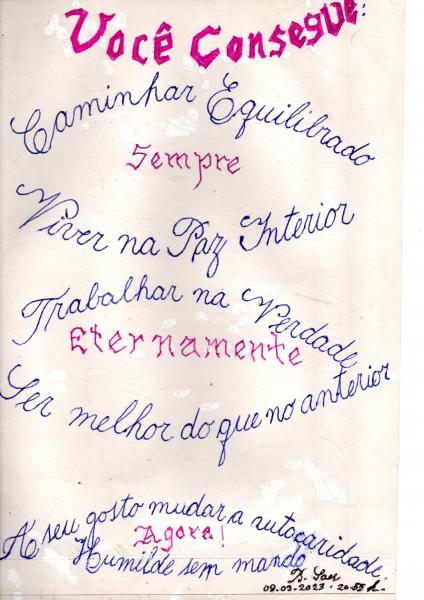 Você Consegue:
Caminhar Equilibrado
Sempre
Viver na Paz Interior
Trabalhar na Verdade
Eternamente
Ser melhor do que no anterior
A seu gosto mudar a autocaridade;
Agora!
Humilde sem mando
09.03.2023